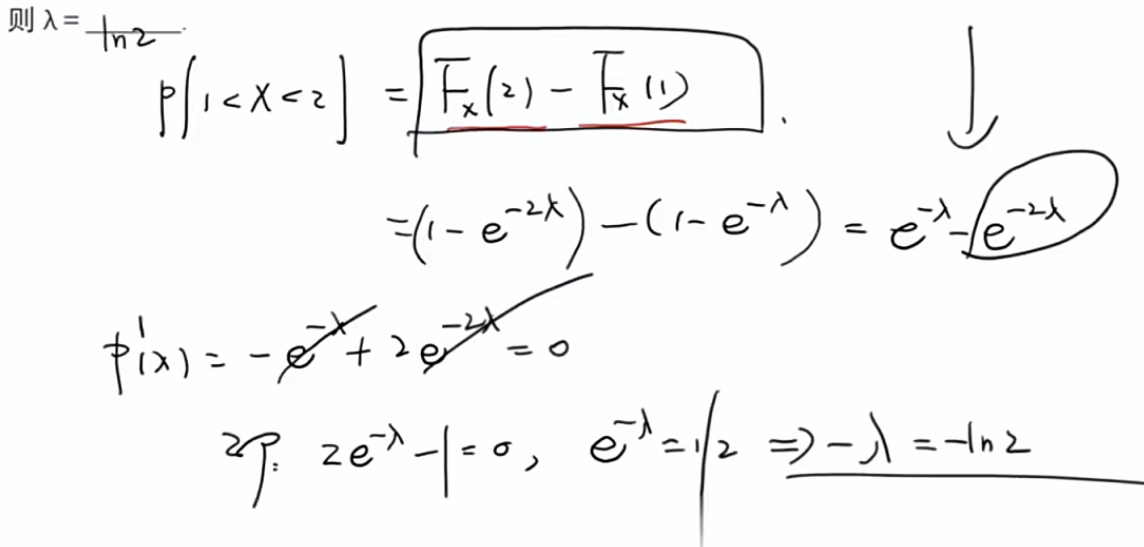 则 λ = ln2
P[1<X<2] = Fx(2) - Fx(1)
=(1-e^{-2λ})-(1-e^{-λ}) = e^{-λ}-e^{-2λ}
p'(λ) = -e^{-λ} + 2e^{-2λ} = 0
2e^{-λ}-1=0, e^{-λ}=1/2 => -λ = -ln2